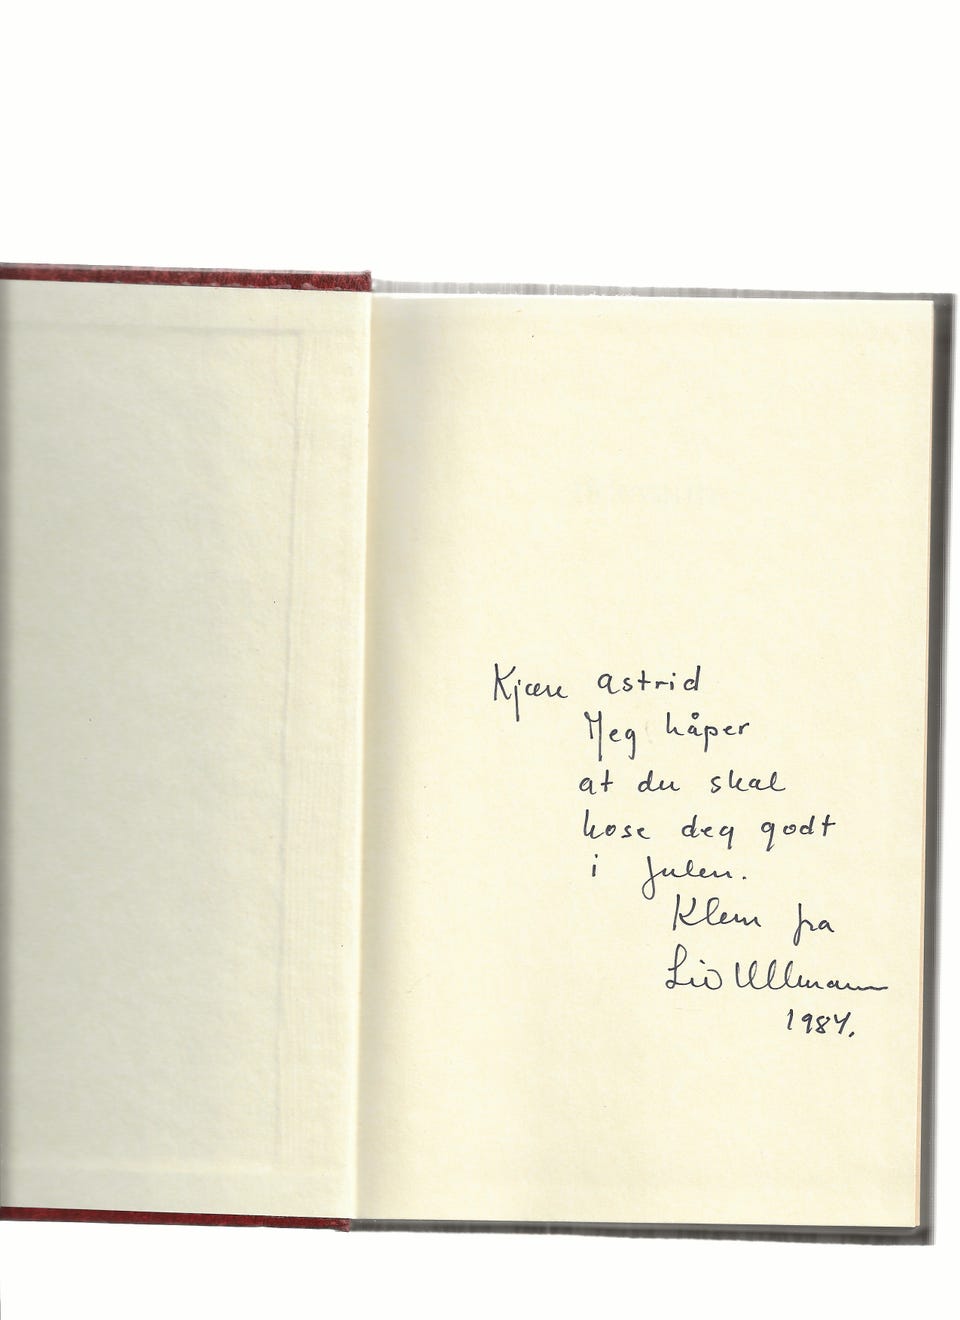 Kjære Astrid
Jeg håper
at du skal
kose deg godt
i Julen.
Klem fra
Liv Ullmann
1984.